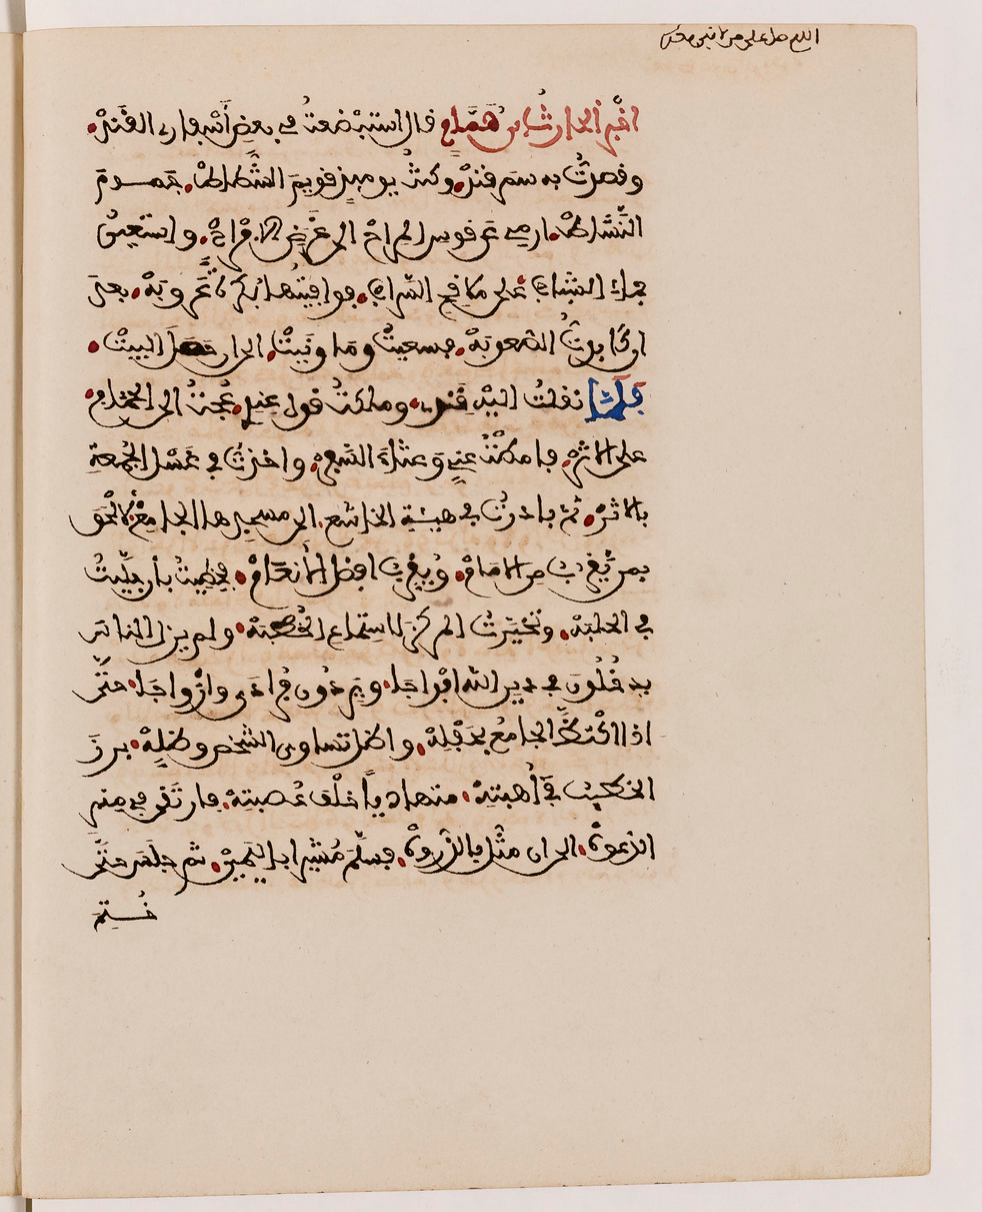 اللهم صل على من لا نبي بعده
اخبر الحارث ابن همام قال استبضعتُ في بعض أسْفاري القَند
وقصدتُ به سمرقند وكنتُ يومئذ قويم الشَّطاط جَموم
النَّشاط ارمي عن قوس المراح الى غَرض الافراح واستعين
بماء الشباب على ملامح السَّراب فوافيتُها بُكرة عَروبة بعد
ان كابدتُ الصُّعوبة فسعيتُ وما ونَيتُ الى ان حصل البيت
فلما نقلتُ اليه قَندي وملكتُ قول عندي عُجتُ الى الحمّام
على الاثر فامطتُ عني وَعثاءَ السَّفر واخذتُ في غسل الجُمعة
بالاثر ثم بادرتُ في هيئة الخاشع الى مسجدها الجامع لألْحق
بمن يَقرب من الامام ويُقرّب افضل الأنعام فحظيتُ بأن جلّيتُ
في الحلبة وتخيّرتُ المركز لاستماع الخُطبة ولم يزل الناس
يدخُلُون في دين الله افواجا ويَردُون فُرادى وأزْواجا حتّى
اذا اكْتظّ الجامعُ بحَفْله واظل تساوى الشخص وظله برزَ
الخطيبُ في أُهبته متهاديًا خلْف عُصبته فارتَقى في منبر
الدعوة الى ان مثُل بالذروة فسلّم مُشيرا باليمين ثم جلسَ حتَّى
خُتم